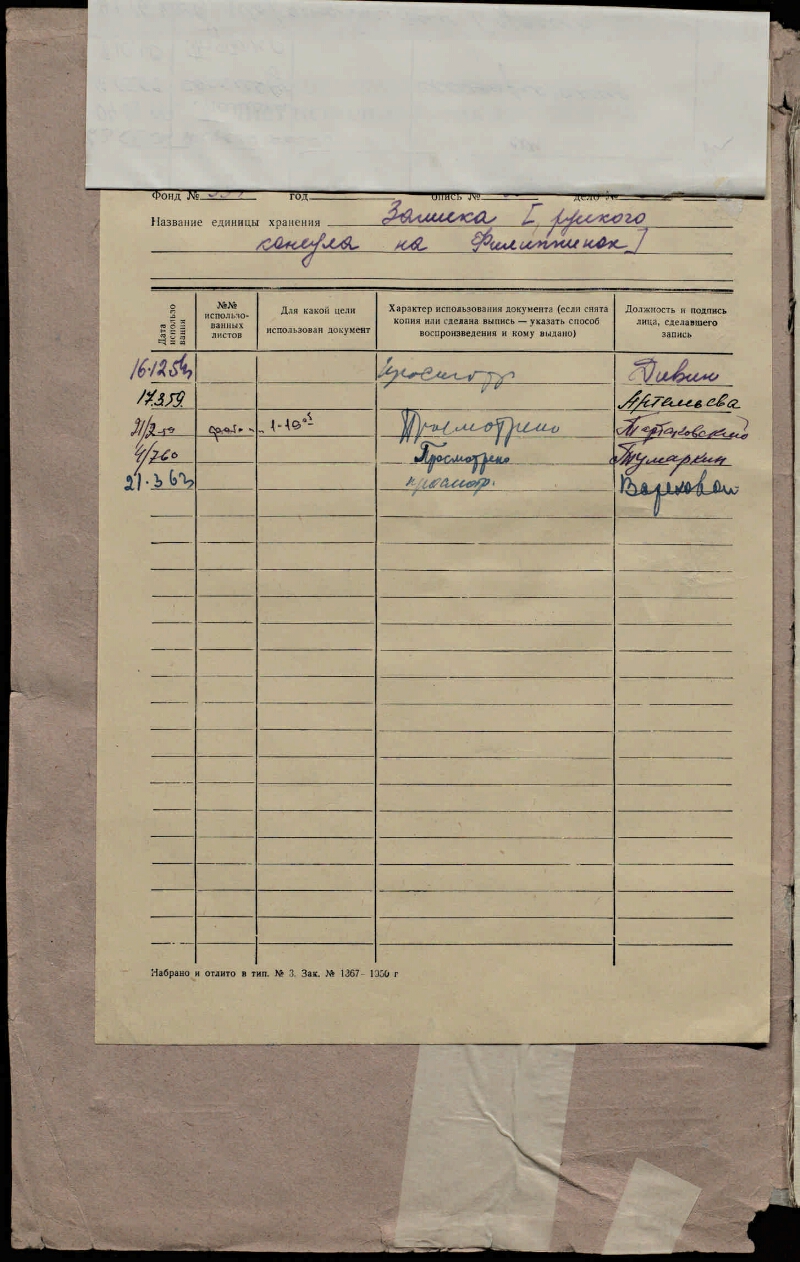 Фонд № год опись № дело №
Название единицы хранения Записка [русского
консула на Филиппинах]
Дата использования
№№ использо-
ванных
листов
Для какой цели
использован документ
Характер использования документа (если снята
копия или сделана выпись — указать способ
воспроизведения и кому выдано)
Должность и подпись
лица, сделавшего
запись
16.12.54 просмотр Дивин
17.3.59. Артемьева
21/2 1-19 Просмотрено Тартаковский
4/7 60 Просмотрено Тумаркин
21.3.63 просмотр.
Набрано и отлито в тип. № 3. Зак. № 1367- 1950 г